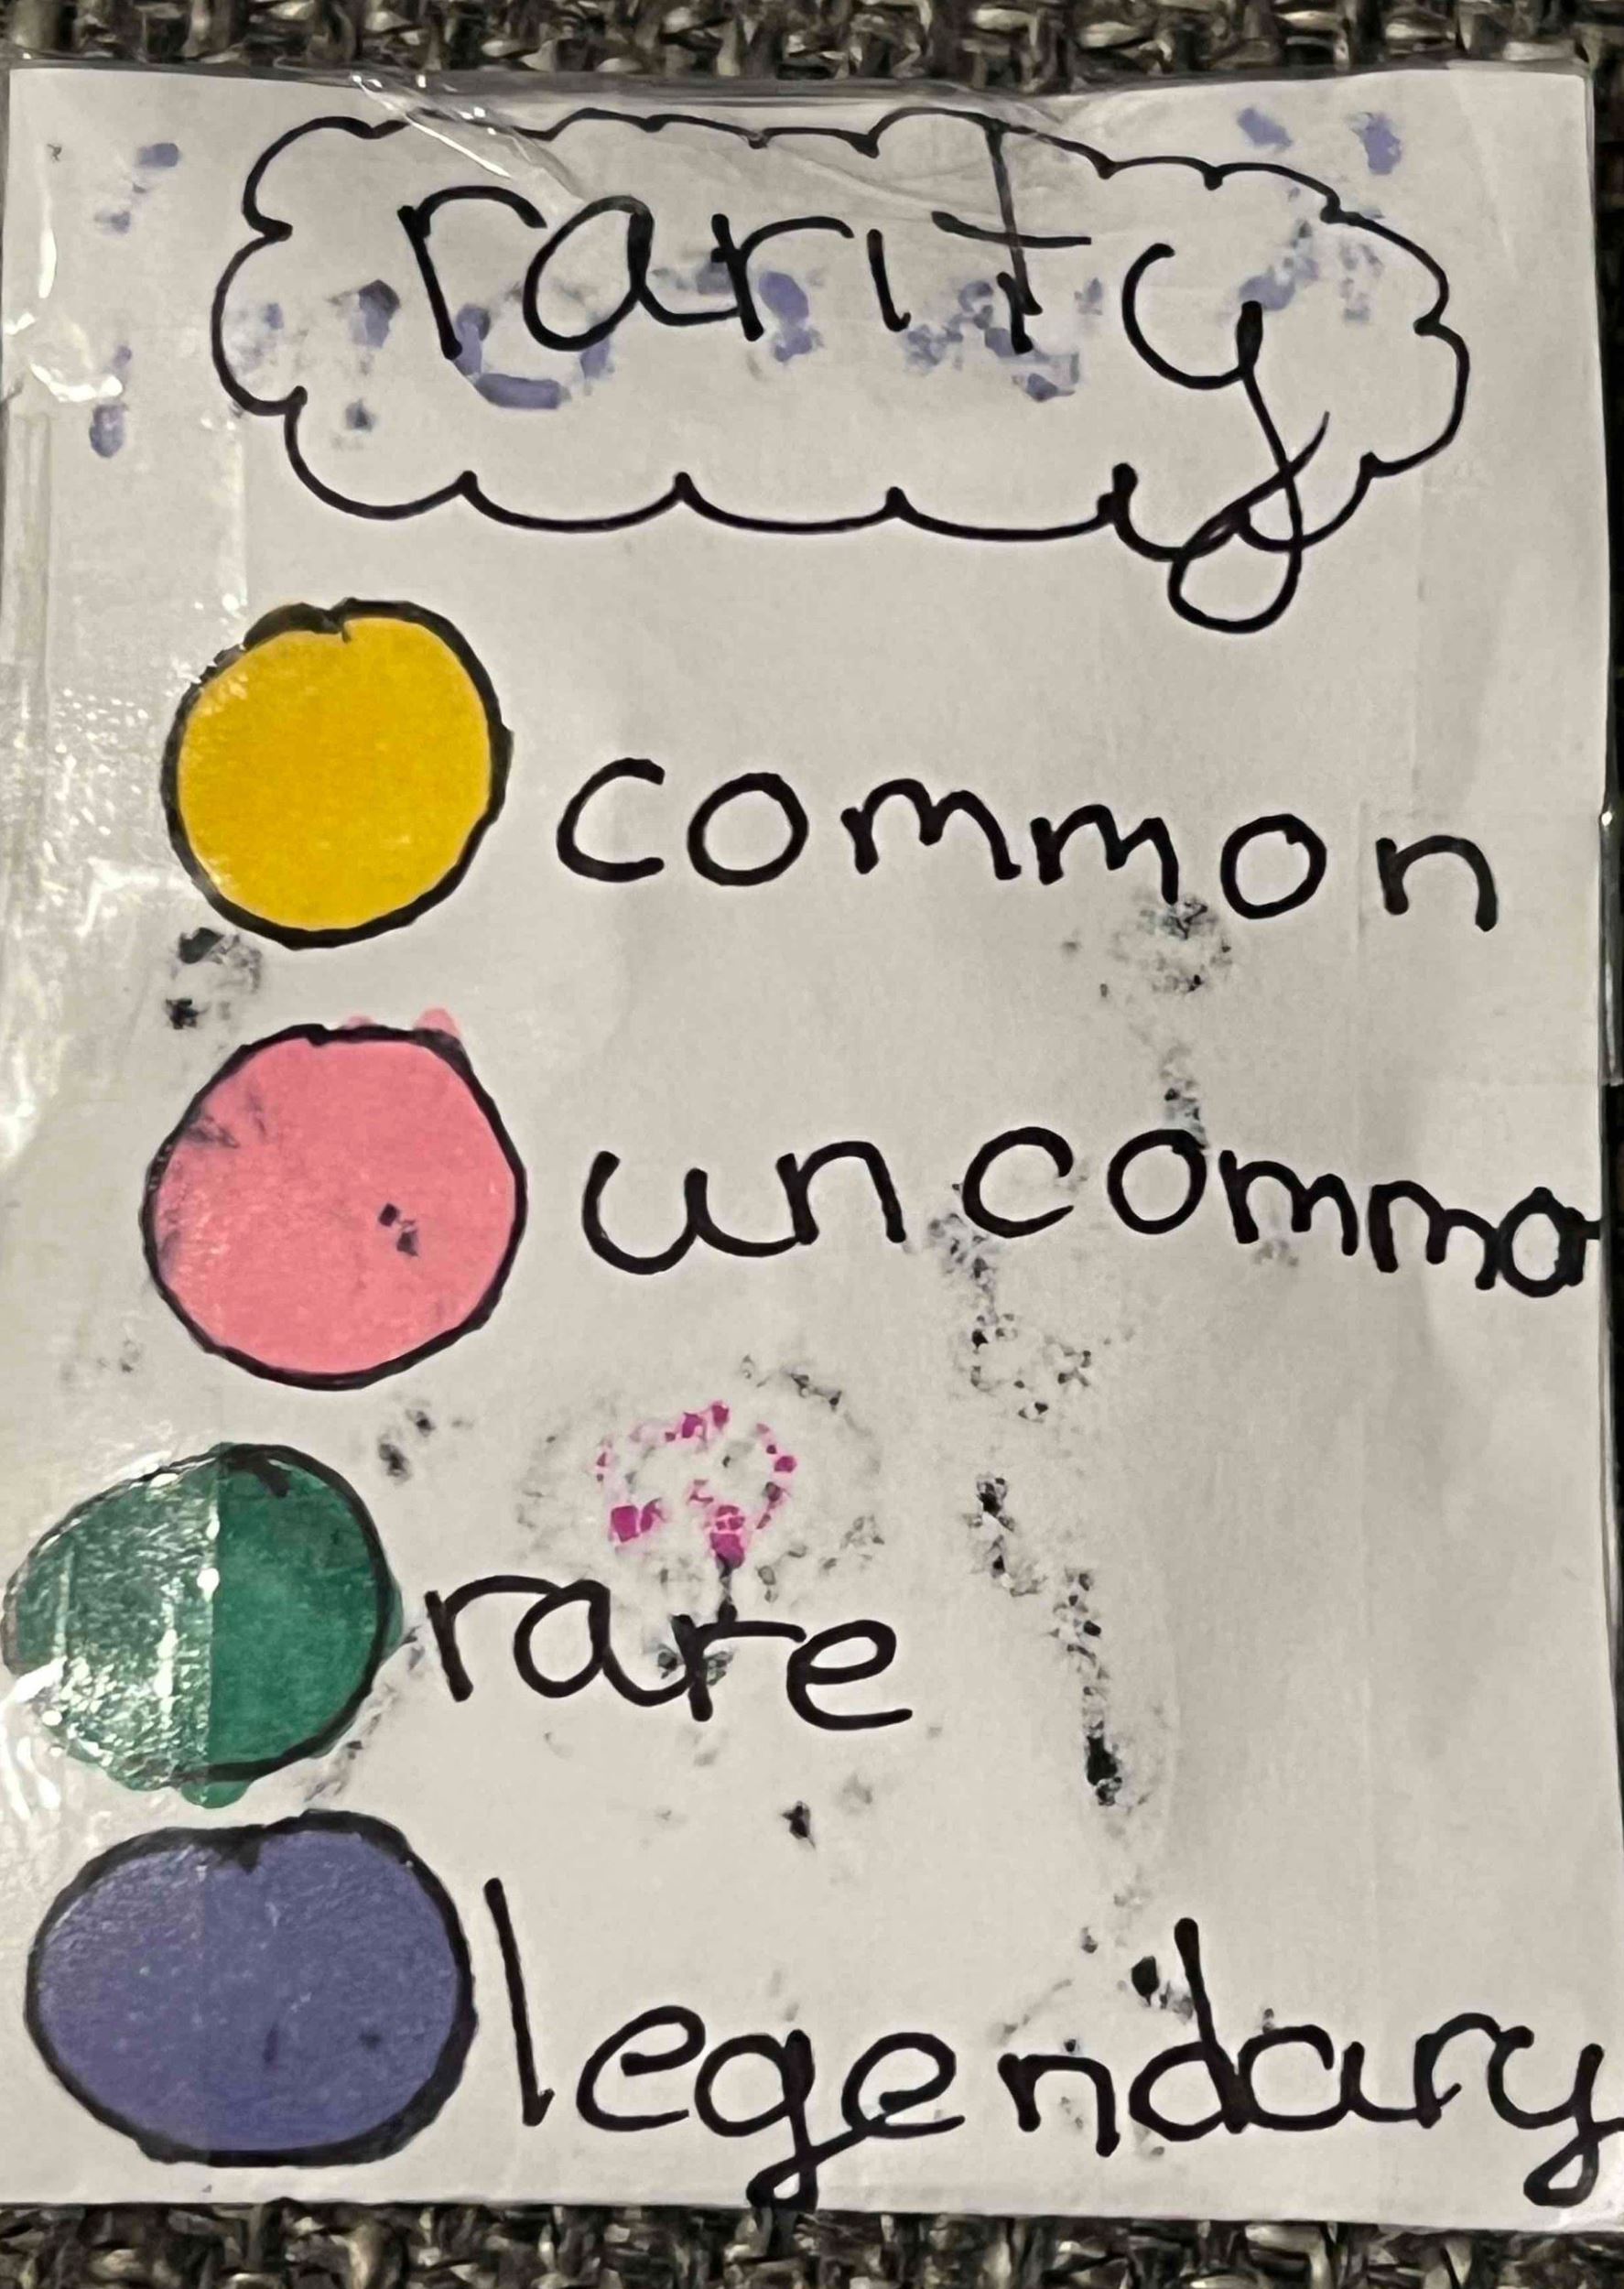 rarity
common
uncommo
rare
legendary